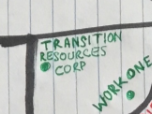 TRANSITION
RESOURCES
CORP
WORK ONE